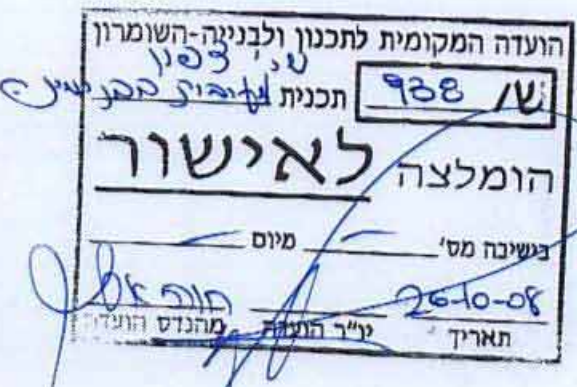 הועדה המקומית לתכנון ולבנייה-השומרון
ש/ 938 תכנית
הומלצה לאישור
בישיבה מס' מיום
26-10-08
תאריך יו"ר הועדה מהנדס הועדה